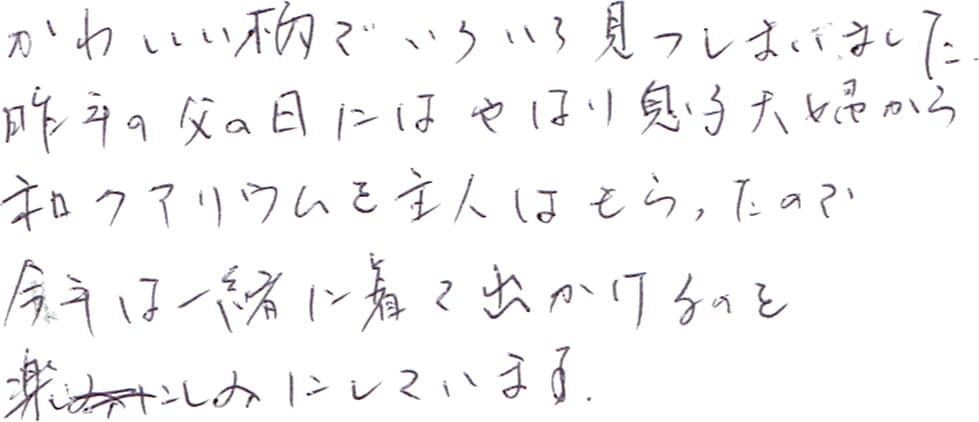 かわいい柄でいろいろ見つしまいました.
昨年の父の日にはやはり息子夫婦から
和クアリウムを主人はもらったので
今年は一緒に着て出かけるのを
楽しみにしています.